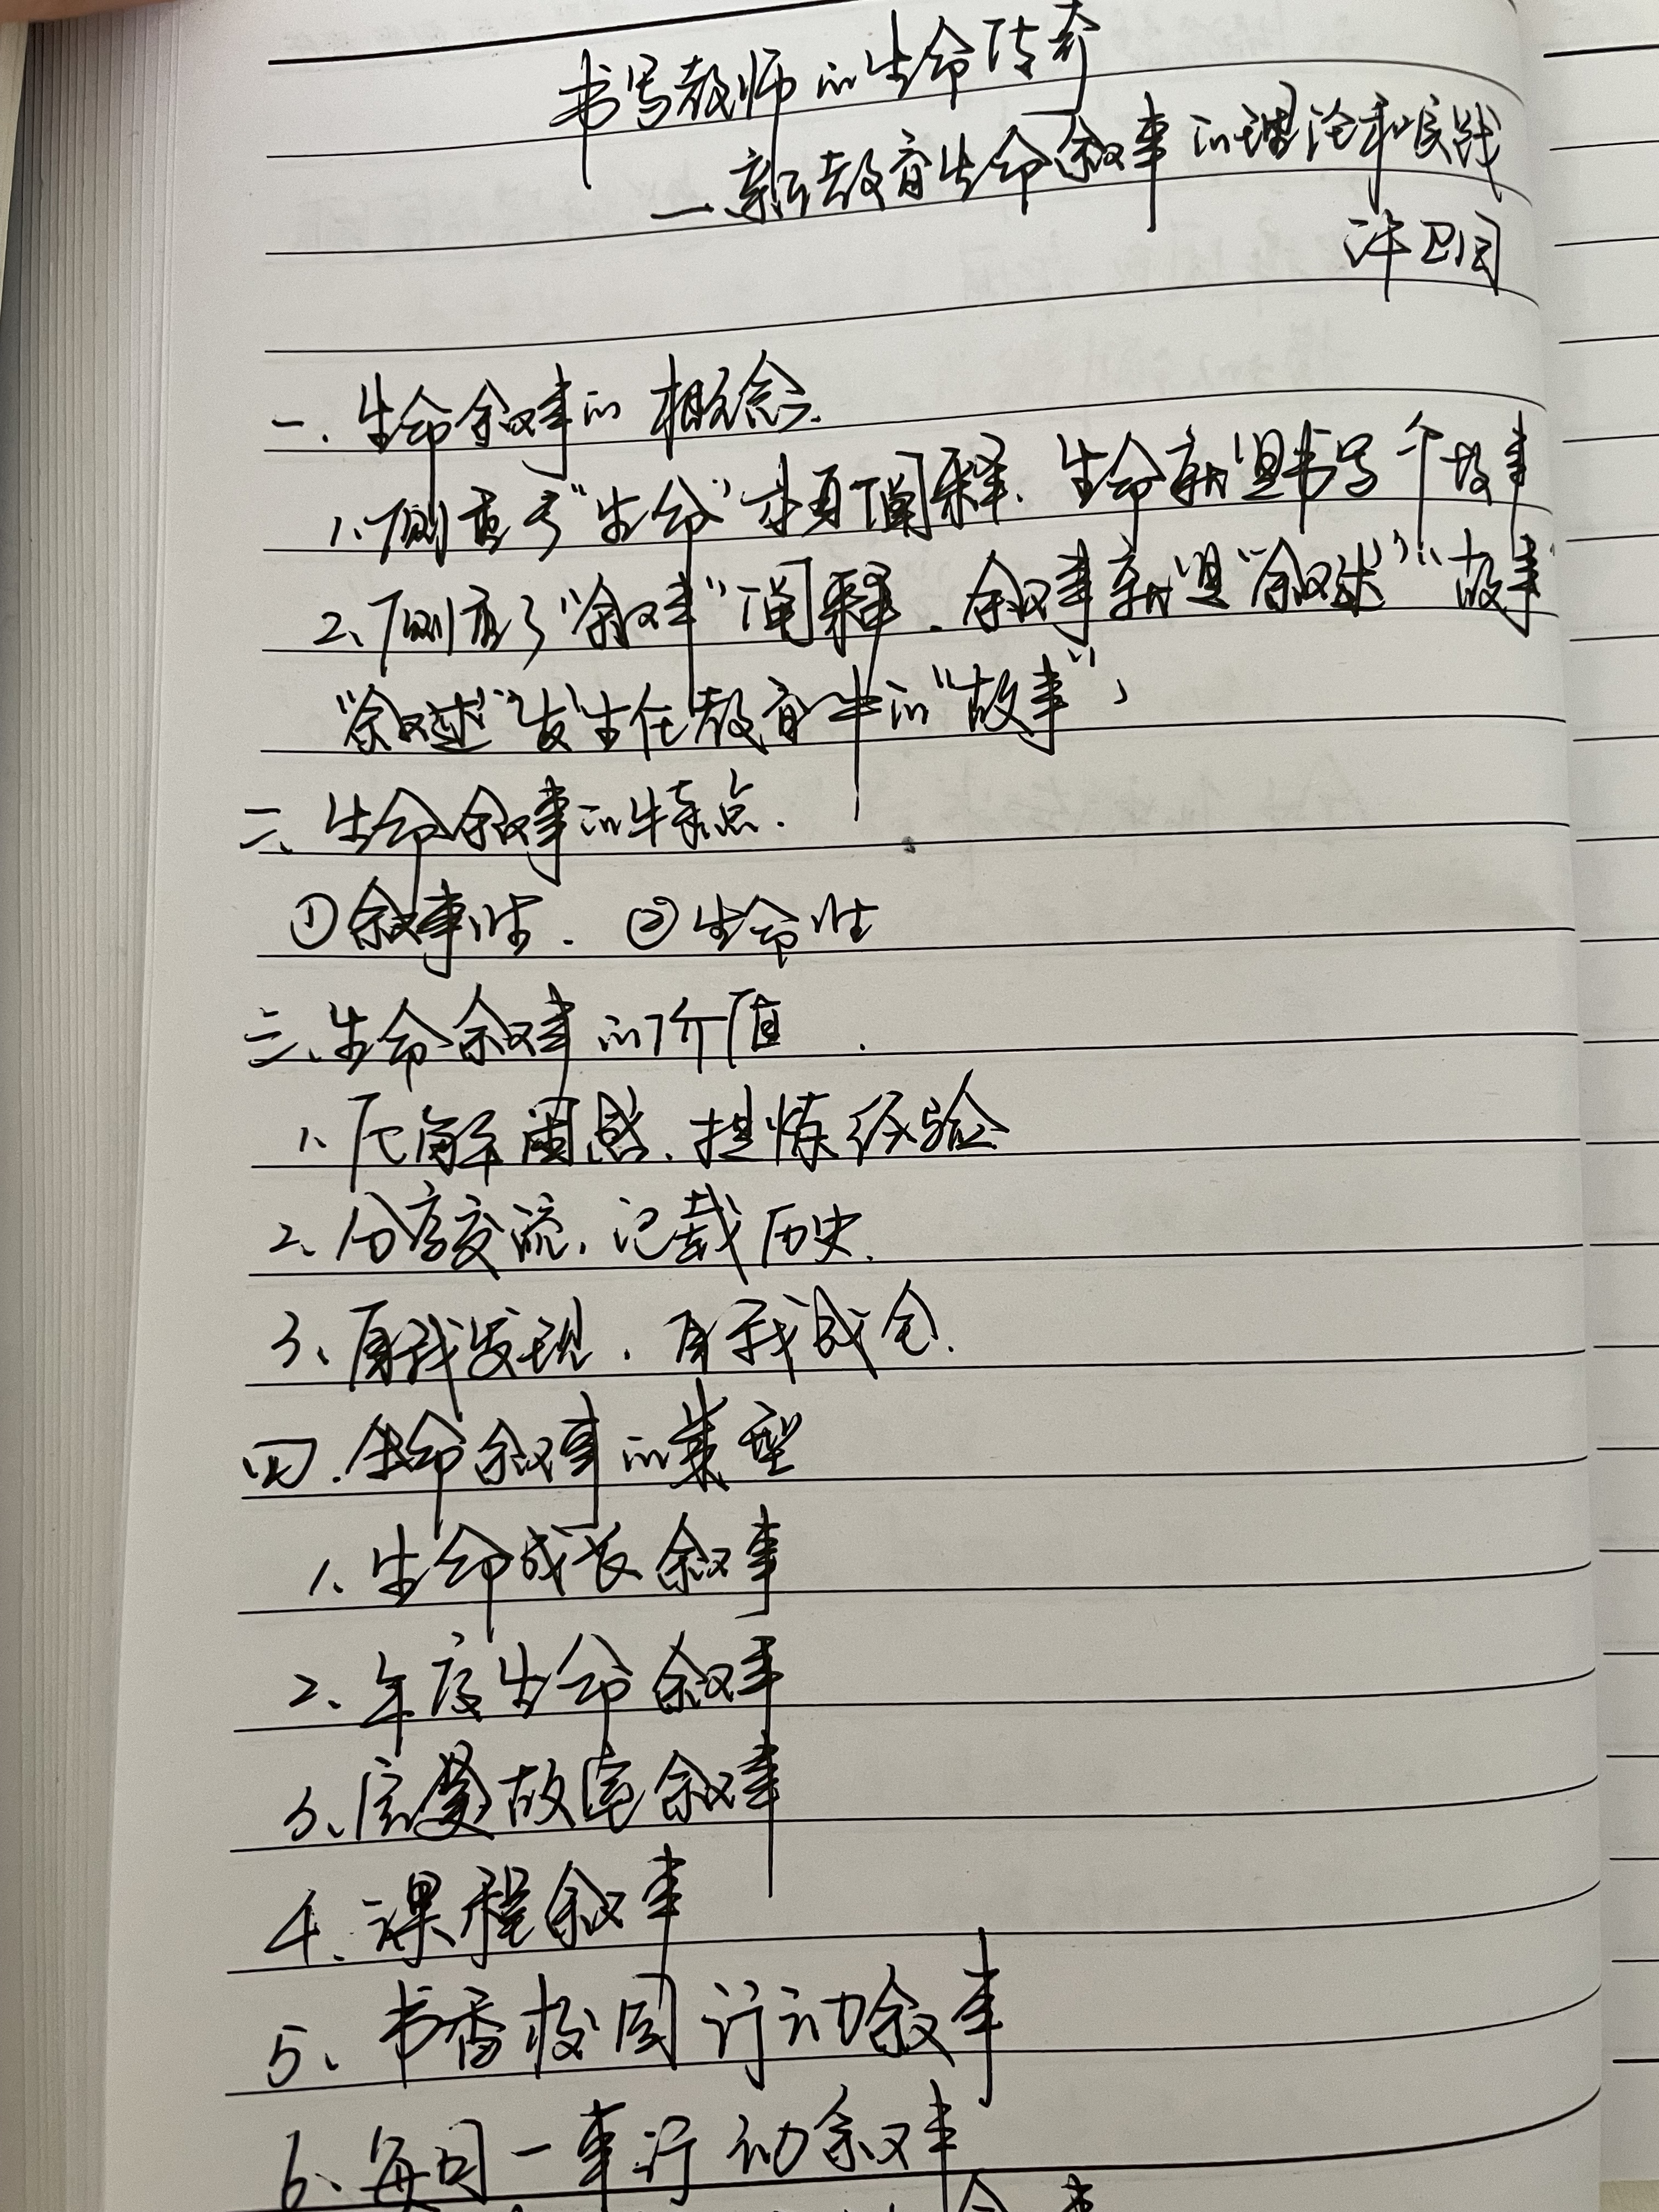 书写教师的生命传奇
—新教育生命叙事的理论和实践
许卫国
一.生命叙事的概念.
1、侧重于“生命”本身阐释.生命就是书写一个故事
2、侧重于“叙事”阐释.叙事就是“叙述”“故事”
“叙述”发生在教育中的“故事”,
二、生命叙事的特点.
①叙事性. ②生命性
三、生命叙事的价值.
1、了解困惑、提炼经验
2、分享交流,记载历史.
3、自我发现.自我成全.
四.生命叙事的类型
1、生命成长叙事
2、年度生命叙事
3、完美教室叙事
4、课程叙事
5、书香校园行动叙事
6、每月一事行动叙事